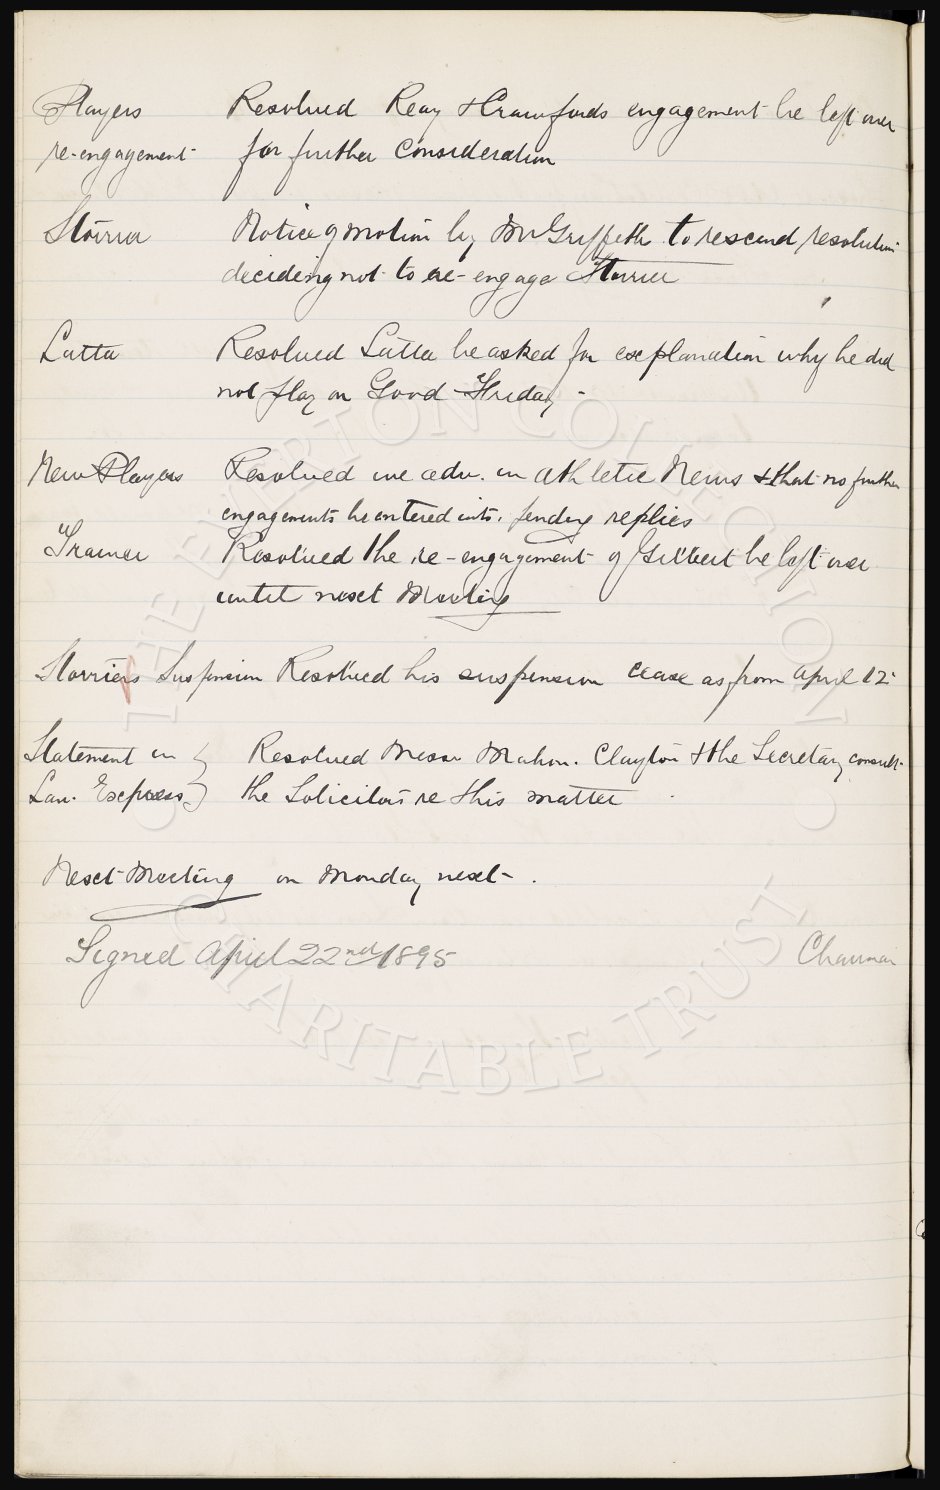 Players Resolved Reay & Crawfords engagement be left over
re-engagement for further consideration
Storrier Notice of motion by Mr Griffith to rescind resolution
deciding not to re-engage Storrier
Latta Resolved Latta be asked for explanation why he did
not play on Good Friday -
New Players Resolved we adv. in Athletic News & that no further
engagements be entered into, pending replies
Trainer Resolved the re-engagement of Gilbert be left over
until next Meeting
Storriers Suspension Resolved his suspension cease as from April 12
Statement in Resolved Messrs Mahon. Clayton & the Secretary consult
Lan. Express the Solicitors re this matter
Next Meeting on Monday next.
Signed April 22nd/1895 Chairman
THE EVERTON COLLECTION
CHARITABLE TRUST